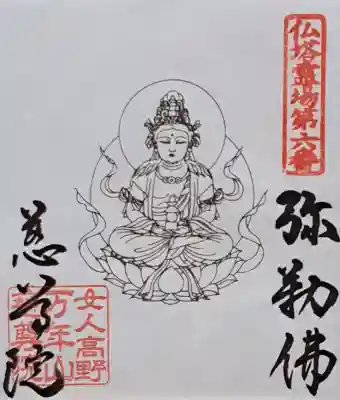 仏塔霊場第六番
弥勒佛
慈尊院
女人高野
万年山
慈尊院